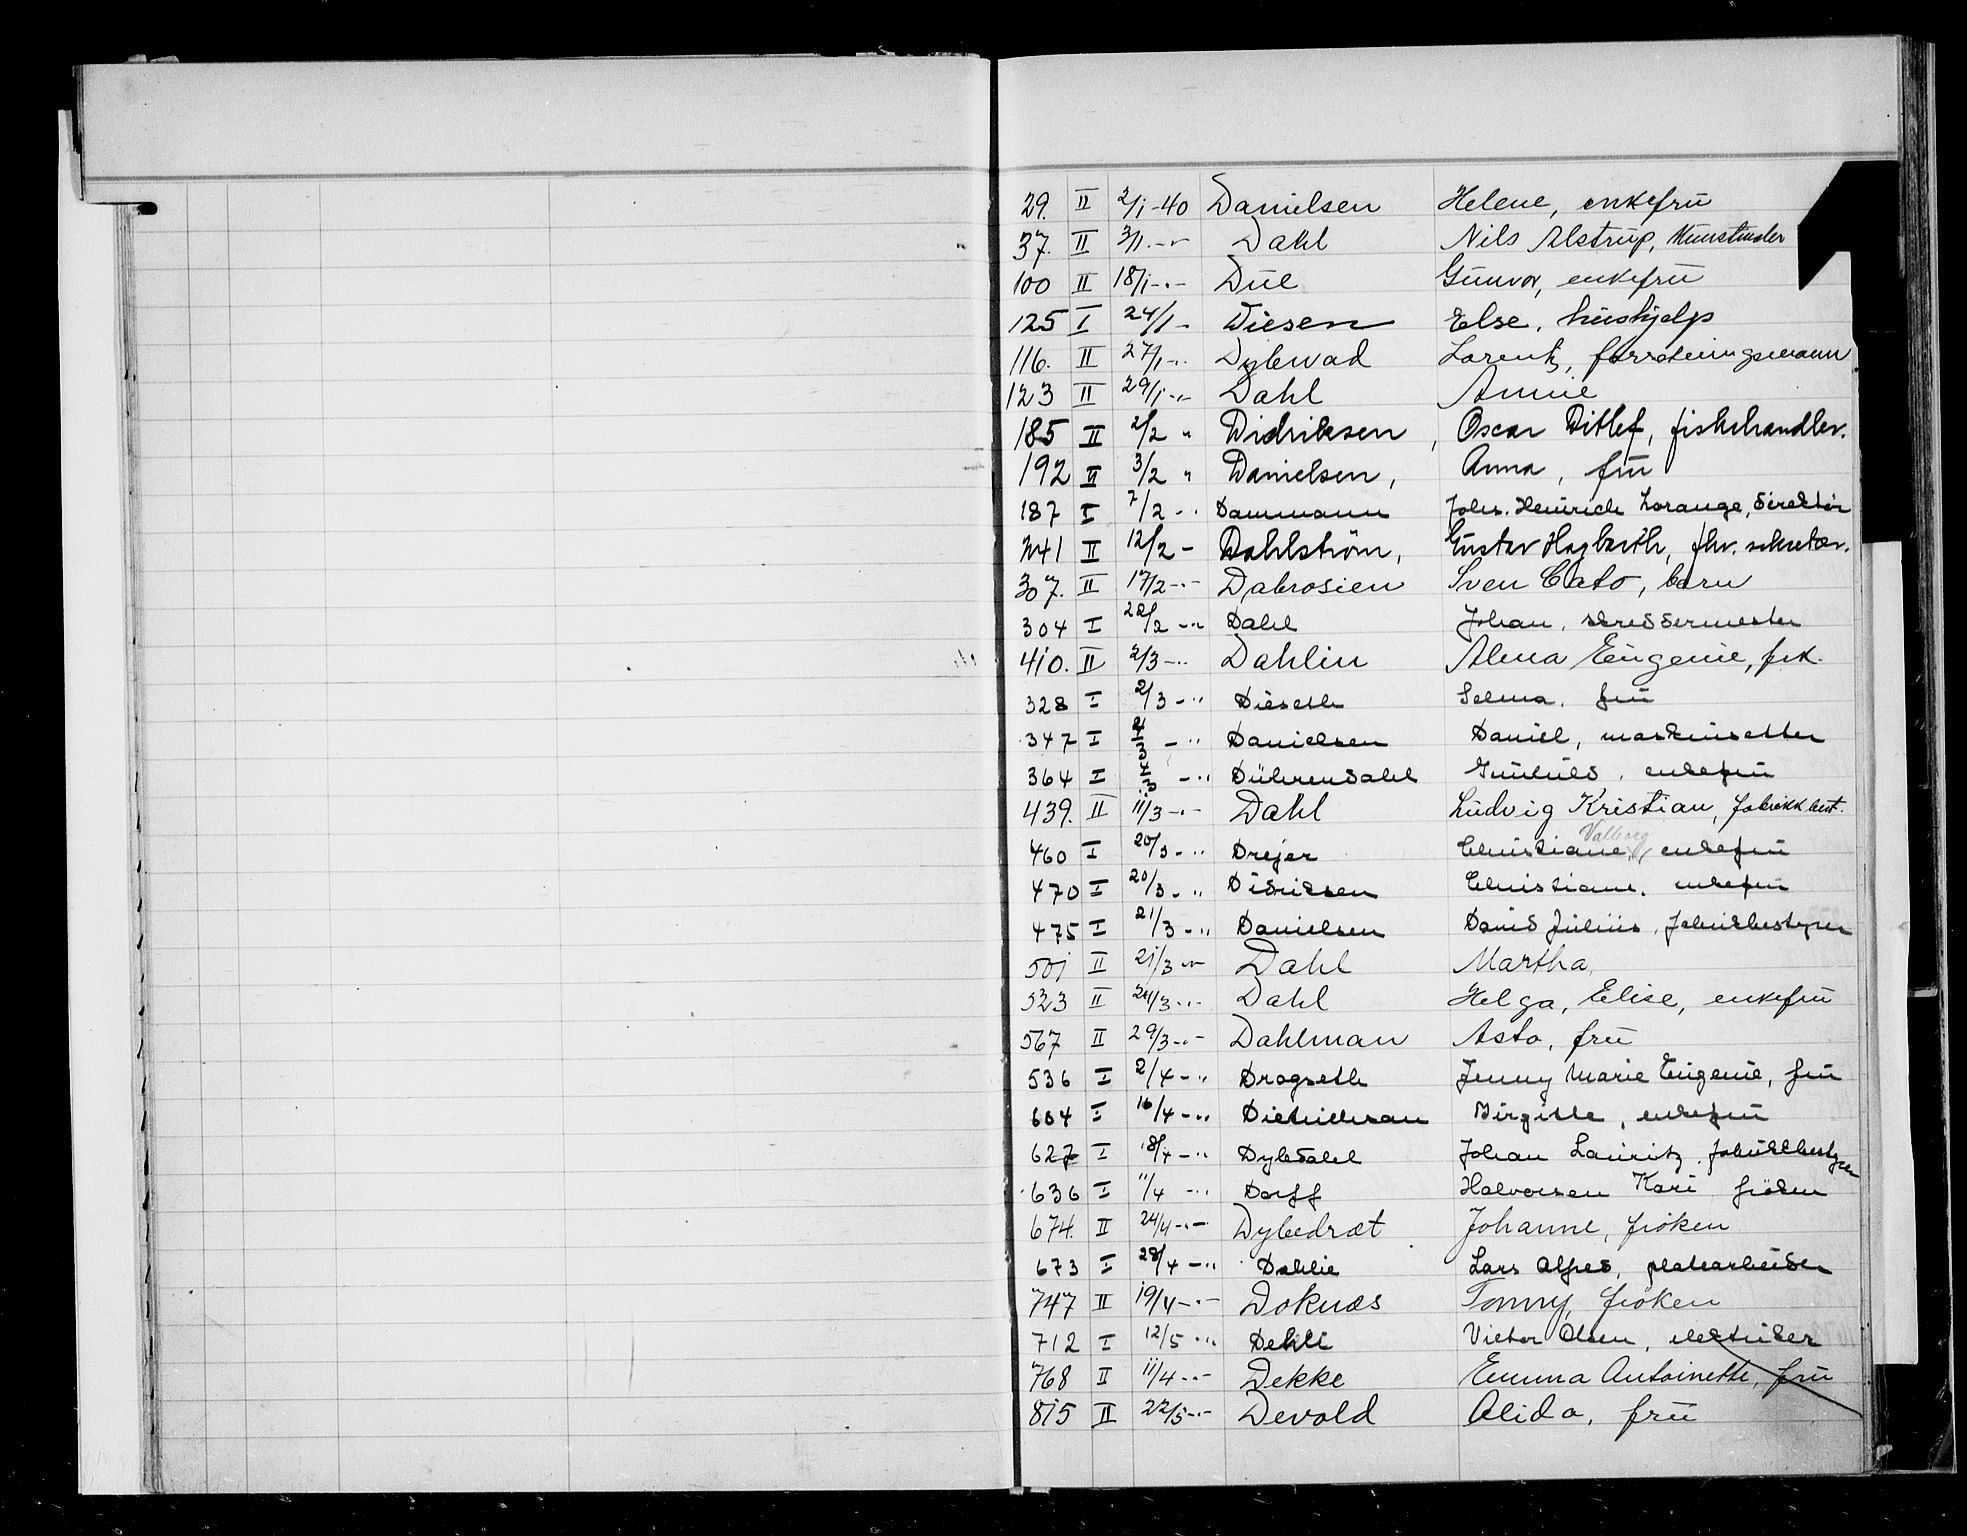 29. II 2/1-40 Danielsen Helene, enkefrü
37. II 3/1.-"- Dahl Nils Alstrup, Kunstmaler
100 II 18/1-"- Düe Günvor, enkefrü
125 I 24/1- Diesen Else, hüshjelp
116. II 27/1-" Dybwad Lorentz, forretningsmann
123 II 29/1-"- Dahl Annie
185 II 2/2 " Didriksen, Oscar Ditlef, fiskehandler.
192 II 3/2 " Danielsen, Anna, frü
187 I 7/2 -" Dammann Johs. Heinrich Lorange, direktör
241 II 12/2 - Dahlström, Güstav Hagbarth, fhv. sekretær.
307. II 17/2-"- Dabrosien Sven Cato, barn
304 I 22/2 -" Dahl Johan, skreddermester
410. II 2/3-" Dahlin Alma Eügenie, frk.
328 I 2/3 -" Dieseth Selma, frü
347 I -" Danielsen Daniel, maskinsetter
364 I -" Dührendahl Günhild, enkefrü
439. II 11/3-"- Dahl Lüdvig Kristian, fabrikkbest.
Valborg
460 I 20/3 -" Drejer Christiane, enkefrü
470 I 20/3 -" Didriksen Christiane, enkefrü
475 I 21/3 -" Danielsen David Jüliüs, fabrikkbestyrer
501 II 21/3 -"- Dahl Martha,
523 II 24/3-"- Dahl Helga, Elise, enkefrü
567 II 29/3-"- Dahlman Asta, frü
536 I 2/4 -" Dragseth Jenny Marie Eügenie, frü
604 I 16/4 -" Dietrichson Birgitte, enkefrü
627 I 18/4 -" Dybdahl Johan Lauritz, fabrikkbestyrer
636 I 11/4 -" Dorff Halvorsen Kari fröken
674. II 24/4-"- Dybedræt Johanne, fröken
673 I 28/4 -" Dahlie Lars Alfred, platearbeider
747 II 19/4-"- Doknæs Tonny, fröken
712 I 12/5 -" Dehli Victor Olsen, elektriker
768 II 11/4-"- Dekke Emma Antoinette, frü
815 II 22/5-"- Devold Alida, frü